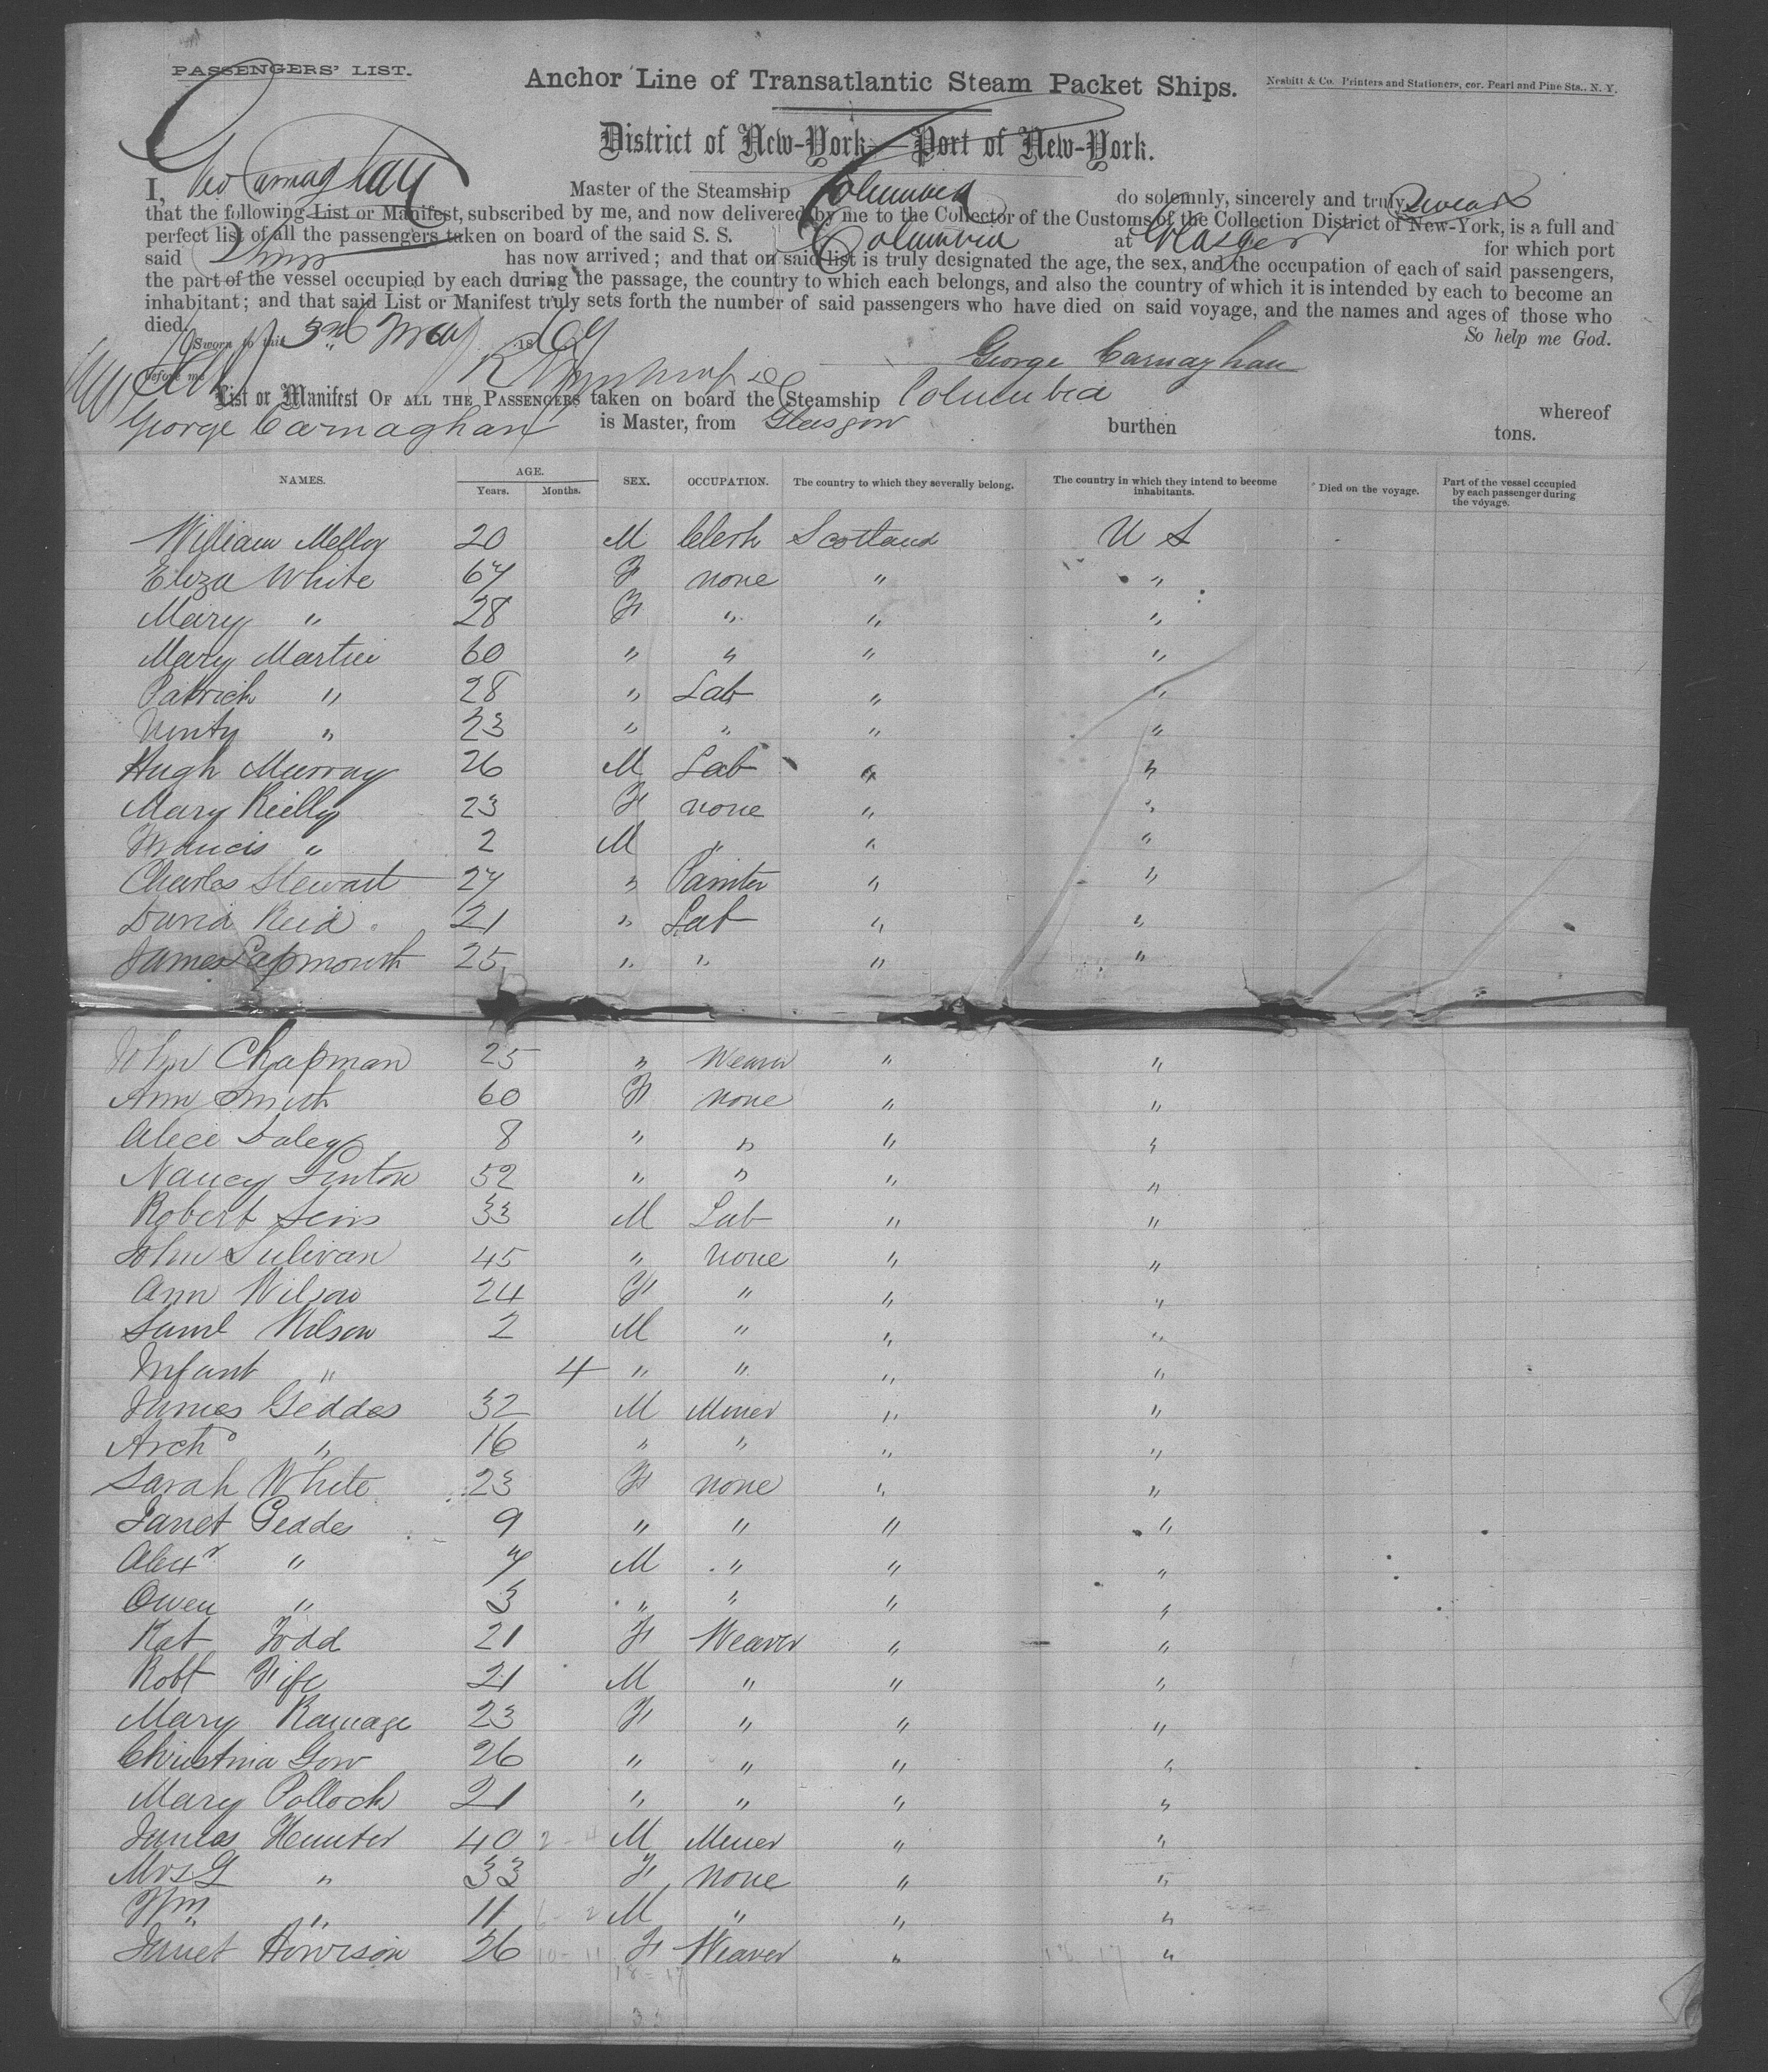 PASSENGERS' LIST.
Anchor Line of Transatlantic Steam Packet Ships.
Nesbitt & Co. Printers and Stationers, cor. Pearl and Pine Sts., N. Y.
District of New-York—Port of New-York.
I, Geo Carnaghan Master of the Steamship Columbia do solemnly, sincerely and truly Swear
that the following List or Manifest, subscribed by me, and now delivered by me to the Collector of the Customs of the Collection District of New-York, is a full and
perfect list of all the passengers taken on board of the said S. S. Columbia at Glasgow for which port
said has now arrived; and that on said list is truly designated the age, the sex, and the occupation of each of said passengers,
the part of the vessel occupied by each during the passage, the country to which each belongs, and also the country of which it is intended by each to become an
inhabitant; and that said List or Manifest truly sets forth the number of said passengers who have died on said voyage, and the names and ages of those who
died. So help me God.
Sworn to this 3rd May 1869
George Carnaghan
before me
List or Manifest OF ALL THE PASSENGERS taken on board the Steamship Columbia whereof
George Carnaghan is Master, from Glasgow burthen tons.
NAMES. AGE. Years. Months. SEX. OCCUPATION. The country to which they severally belong. The country in which they intend to become inhabitants. Died on the voyage. Part of the vessel occupied by each passenger during the voyage.
William Melloy 20 M Clerk Scotland U S
Eliza White 67 F none " "
Mary " 28 F " " "
Mary Martin 60 " " " "
Patrick " 28 " Lab " "
" 23 " " " "
Hugh Murray 26 M Lab " "
Mary Reilly 23 F none " "
Francis " 2 M " " "
Charles Stewart 27 " Painter " "
David Reid 21 " Lab " "
James 25 " " " "
John Chapman 25 " Weaver " "
Ann Smith 60 F none " "
Alice Daley 8 " " " "
Nancy Linton 52 " " " "
Robert Sims 33 M Lab " "
John Sulivan 45 " none " "
Ann Wilson 24 F " " "
Saml Wilson 2 M " " "
Infant " 4 " " " "
James Geddes 32 M Miner " "
Archd " 16 " " " "
Sarah White 23 F none " "
Janet Geddes 9 " " " "
Alexr " 7 M " " "
Owen " 3 " " " "
Kat Todd 21 F Weaver " "
Robt Fife 21 M " " "
Mary Ramage 23 F " " "
Christina Gow 26 " " " "
Mary Pollock 21 " " " "
James Hunter 40 M Miner " "
Mrs G " 33 F none " "
Wm " 11 M " " "
Janet Howison 26 F Weaver " "